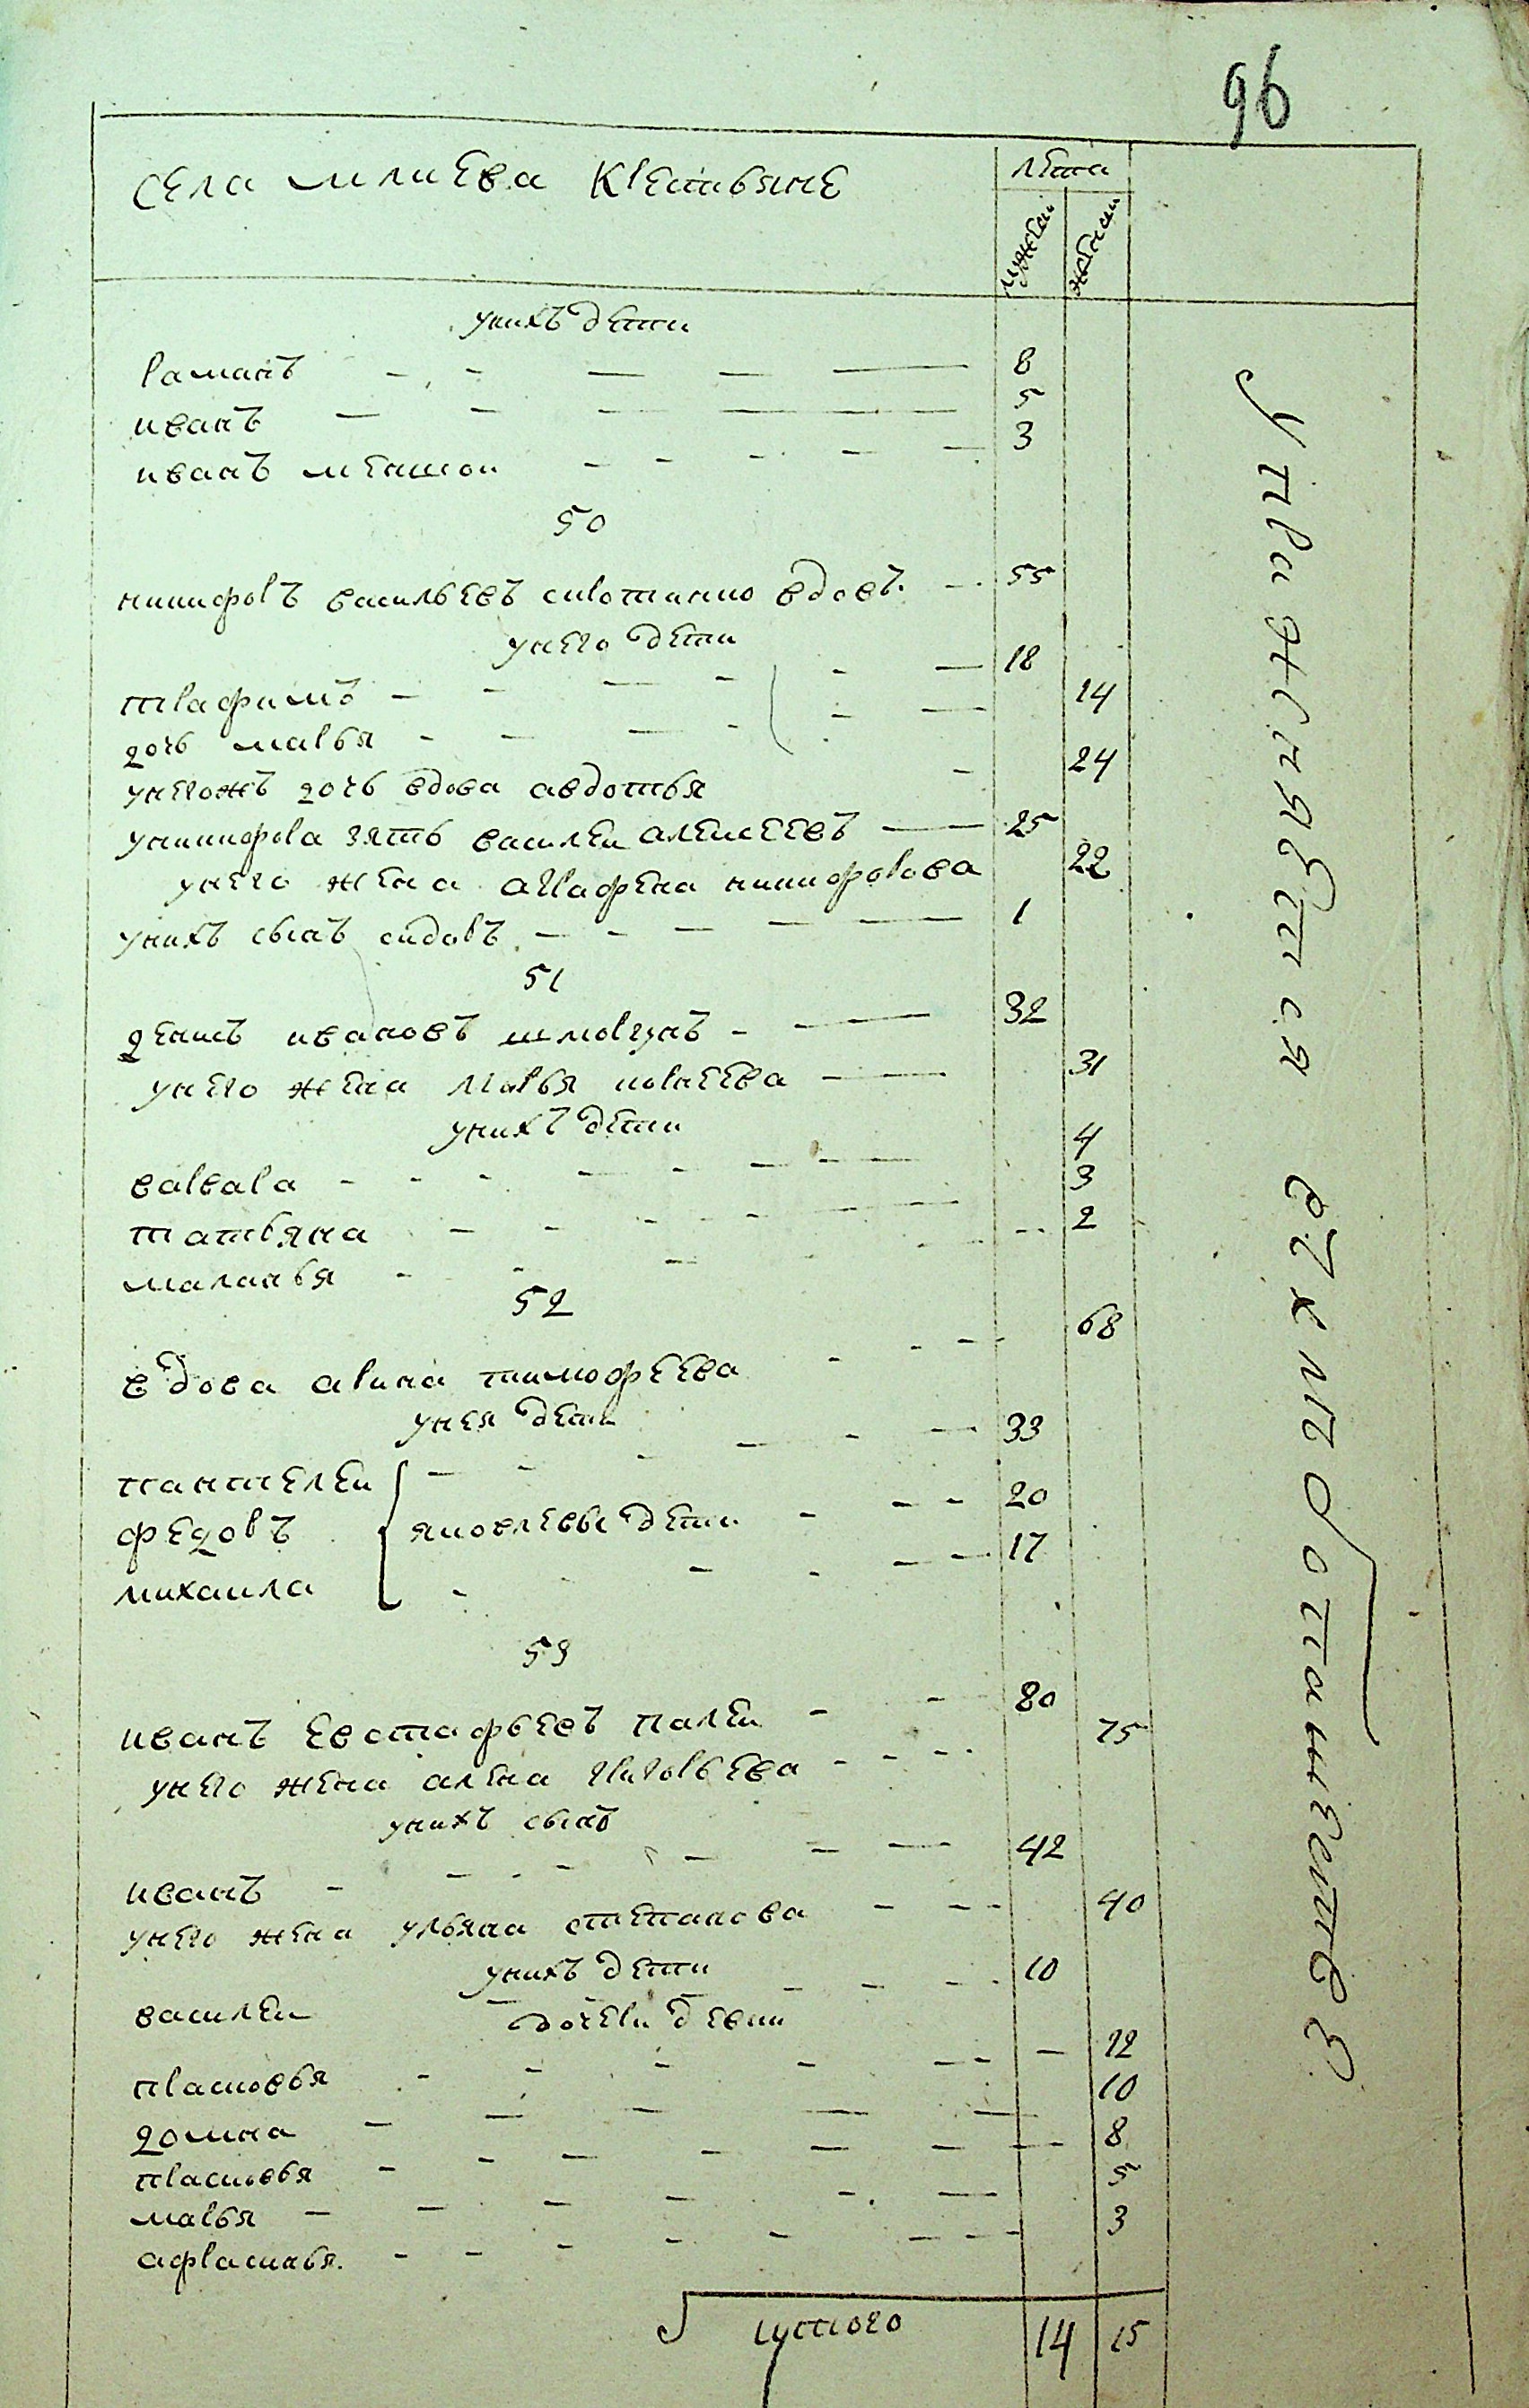 96
села млиева крестьяне
лета
мужеска
женска
унихъ дети
романъ 8
иванъ 5
иванъ меншой 3
50
никифоръ васильевъ сиротинко вдовъ 55
унего дети
трафимъ 18
дочь марья 14
унегожъ дочь вдова авдотья 24
уникифора зять василеи алексеевъ 25
унего жена аграфена никифорова 22
унихъ сынъ сидоръ 1
51
демитъ ивановъ шморгунъ 32
унего жена марья корнеева 31
унихъ дети
варвара 4
татьяна 3
маланья 2
52
вдова арина тимофеева 68
унея дети
пантелеи 33
федоръ яковлевы дети 20
михаила 17
53
иванъ евстафьевъ палеи 80
унего жена алена григорьева 75
унихъ сынъ
иванъ 42
унего жена ульяна степанова 40
унихъ дети
василеи 10
дочери девки
прасковья 12
домна 10
прасковья 8
марья 5
афрасинья 3
итого 14 15
упражняетса в хлебопашестве